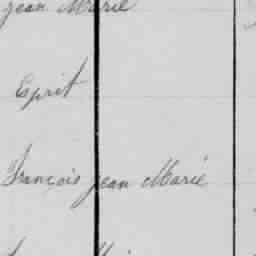 jean Marie
Esprit
François jean Marie